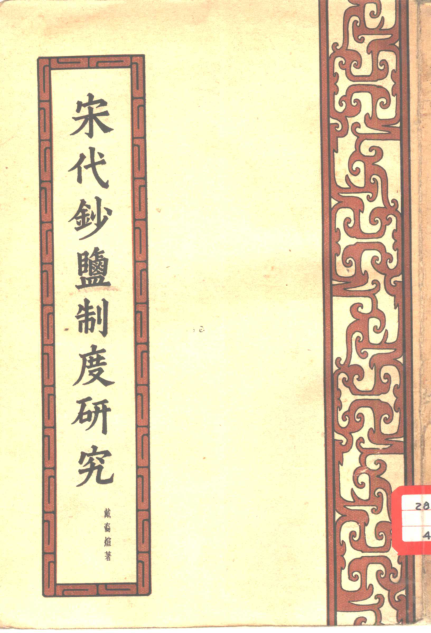 宋代鈔鹽制度研究
戴裔煊著
28
4